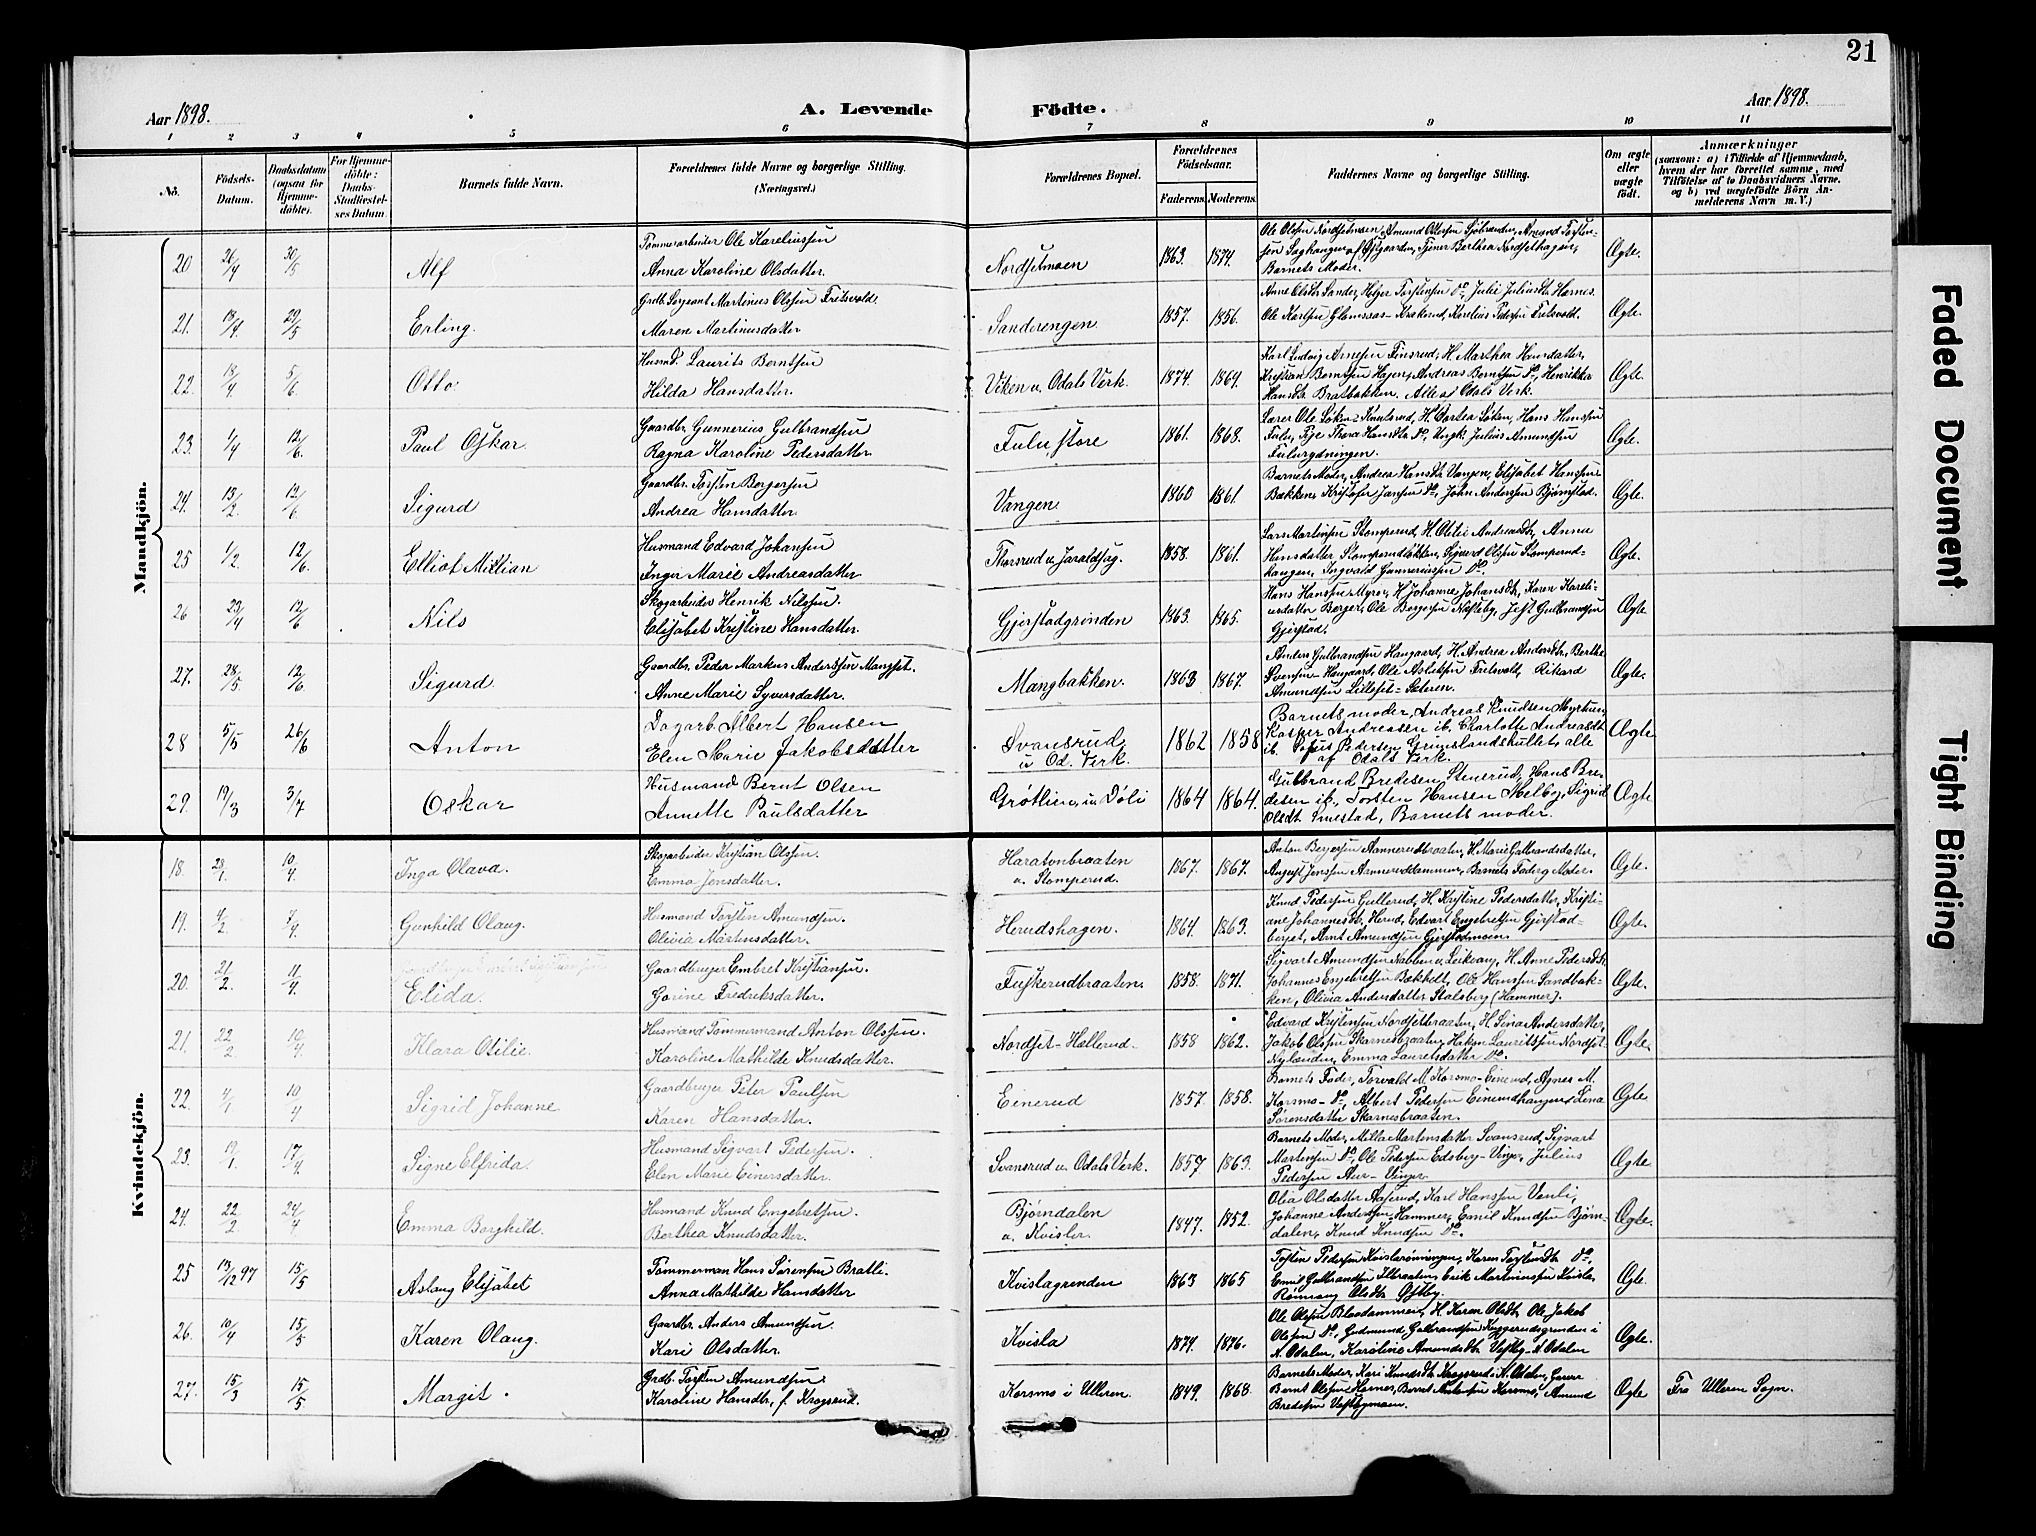 21
Aar 1898.
A. Levende Födte.
Aar 1898.
1 2 3 4 5 6 7 8 9 10 11
No.
Födsels-Datum.
Daabsdatum (ogsaa for Hjemme-döbte).
For Hjemme-döbte: Daabs-Stadfæstel-ses Datum.
Barnets fulde Navn.
Forældrenes fulde Navne og borgerlige Stilling.
(Næringsvei.)
Forældrenes Bopæl.
Forældrenes Födselsaar.
Faderens. Moderens.
Faddernes Navne og borgerlige Stilling.
Om ægte eller uægte født.
Anmærkninger
(saasom: a) i Tilfælde af Hjemmedaab,
hvem der har forrettet samme, med
Tilföielse af to Daabsvidners Navne.
og b) ved uægtefödte Börn An-
melderens Navn m. V.)
Mandkjön.
20 26/4 30/5 Alf
Tømmerarbeider Ole Kareliussen
Anna Karoline Olsdatter.
Nordsetmoen 1863. 1874.
Barnets Moder.
Ægte.
21. 13/4 29/5 Erling.
Grdb. Sergeant Martinius Olssen Fritsvold.
Maren Martinusdatter
Sanderengen 1857. 1856.
Anne Olsdtr Sander, Helger Torstensen Do, Julie Juliusdtr. Hernes.
Ole Karlsen Glomsaas-Krakerud, Karelius Pedersen Fritsvold.
Ægte.
22. 18/4 5/6 Otto.
Husmd. Laurits Berntsen
Hilda Hansdatter.
Viken u. Odals Verk. 1874. 1869.
Karl Ludvig Arnesen Finsrud, H. Marthea Hansdatter,
Kristian Berntsen Hagen, Andreas Berntsen Do, Henrikke
Hansdtr. Bratbakken, Alle af Odals Verk.
Ægte.
23. 1/4 12/6. Paul Oskar.
Gaardbr. Gunnerius Gulbrandsen
Ragna Karoline Pedersdatter
Fulu, store 1861. 1868.
Fulu, Pige Thora Hansdtr. Do, Ungk. Julius Amundsen
Fulurydningen.
Ægte.
24. 13/2 12/6 Sigurd
Gaardbr. Torsten Borgersen
Andrea Hansdatter
Vangen. 1860 1861.
Barnets Moder, Andrea Hansdtr. Vangen, Elisabet Hanssen
Bækken, Kristofer Janssen Do, John Anderssen Bjørnstad.
Ægte.
25 1/2. 12/6. Elliot Mittian
Husmand Edvard Johansen
Inger Marie Andreasdatter
Storsrud u. Jaraldsby. 1858. 1861.
Lars Martinsen Stomperud, H. Otilie Andreasdtr., Anna
Hansdatter Stomperudløkken, Sigvard Olssen Stomperud-
haugen, Ingvald Gunneriussen Do.
Ægte.
26 23/4 12/6 Nils
Skogarbeider Henrik Nilssen.
Elisabet Kristine Hansdatter.
Gjerstadgrinden 1863. 1865.
Hans Hanssen Myrer, H. Johanne Johansdtr., Karen Kareli-
usdatter Berger, Ole Borgersen Næsteby, Jest Gulbrandsen
Gjerstad.
Ægte
27. 28/5. 12/6. Sigurd.
Gaardbr. Peder Markus Anderssen Mangset.
Anne Marie Syversdatter.
Mangbakken. 1863 1867.
Anders Gulbrandsen Haugaard, H. Andrea Andersdtr., Berthe
Svensen Haugaard, Ole Aslaksen Fritsvold, Rikard
Amundsen Lillset-Sæteren.
Ægte.
28 5/5 26/6 Anton
Dagarb. Albert Hansen
Elen Marie Jakobsdatter
Svansrud u Od. Verk. 1862 1858
Barnets moder, Andreas Knudsen Myrhung
Kasper Andreasen ib. Charlotte Andreasdt.
ib. Sofus Pedersen Grunslandshullet, alle
af Odals Verk.
Ægte
29. 19/3 3/7 Oskar
Husmand Bernt Olsen
Annette Paulsdatter
Grøtlien, u Døli 1864 1864.
Gulbrand Bredesen Stenerud, Hans Bre-
desen ib., Torsten Hansen Melby, Sigrid
Olsdt. Smestad, Barnets moder.
Ægte
Kvindekjön.
18. 28/1. 10/4 Inga Olava.
Skogarbeider Kristian Olssen.
Emma Jensdatter.
Haratonbraaten u. Stomperud. 1867. 1867.
Anton Bergersen Aannerudbraaten, H. Marie Gulbrandsdatter,
August Jenssen Aanneruddammen, Barnets Fader og Moder.
Ægte.
19. 4/2 7/4 Gunhild Olaug.
Husmand Torsten Amundsen.
Olivia Martensdatter.
Herudshagen. 1864. 1863.
Knud Pedersen Gullerud, H. Kristine Pedersdatter, Kristi-
ane Johannesdtr. Herud, Edvart Engebretsen Gjerstad-
berget, Arnt Amundsen Gjerstadmoen.
Ægte.
20. 21/2. 11/4 Elida.
Gaardbruger Embret Kristiansen.
Gorine Fredriksdatter.
Fuskerudbraaten. 1858. 1871.
Sigvart Amundsen Nabben u. Leikvang, H. Anne Pedersdtr.
Johannes Engebretsen Bækhelt, Ole Hanssen Sandbak-
ken, Olivia Andersdatter Stalsberg (Hammer).
Ægte.
21. 22/2 10/4 Klara Otilie.
Husmand Tømmermand Anton Olssen.
Karoline Mathilde Knudsdatter.
Nordset-Hellerud 1858 1862.
Edvard Kristensen Nordsetbraaten, H. Lina Andersdatter,
Jakob Olssen Skarnesbraaten, Hakon Lauritssen Nordset-
Nylænden, Emma Lauritsdatter Do.
Ægte.
22. 4/1 10/4 Sigrid Johanne
Gaardbruger Peter Paulsen
Karen Hansdatter.
Einerud 1857. 1858.
Barnets Fader, Torvald M. Korsmo-Einerud, Agnes M.
Korsmo- Do, Albert Pedersen Einerudhaugen, Lena
Sørensdatter Skarnesbraaten.
Ægte
23. 19/1. 17/4 Signe Elfrida.
Husmand Sigvart Pedersen.
Elen Marie Einersdatter.
Svansrud u. Odals Verk. 1857. 1863.
Barnets Moder, Milla Martensdatter Svansrud, Sigvart
Martinsen Do, Ole Pedersen Edsberg-Vinger, Julius
Pedersen Aur-Vinger
Ægte
24. 22/2 24/4 Emma Borghild.
Husmand Knud Engebretsen.
Berthea Knudsdatter.
Bjørndalen u. Kvisler. 1847. 1852.
Olia Olsdatter Aaserud, Karl Hanssen Vænli,
Johanne Anderssen Hammer, Emil Knudsen Bjørn-
dalen, Knud Knudsen Do.
Ægte.
25 19/12 97 15/5 Aslaug Elisabet
Tømmerman Hans Sørensen Bratli.
Anna Mathilde Hansdatter
Kvislagrenden 1863 1865
Tosten Pedersen Kvislarønningen, Karen Torstensdtr. Do,
Emil Gulbrandsen Ilbraaten, Erik Martiniussen Kvisla,
Rønnaug Olsdtr. Østby.
Ægte.
26. 10/4 15/5 Karen Olaug.
Gaardbr. Anders Amundsen.
Kari Olsdatter.
Kvisla 1874. 1876.
Ole Olssen Blaadammen, H. Karen Olsdtr. Ole Jakob
Olssen Do, Gudmund Gulbrandsen Kuggerudsgrenden i
N. Odalen, Karoline Amundsdtr. Vestby-N. Odalen
Ægte.
27. 15/3 15/5 Margit.
Grdb. Torsten Amundsen.
Karoline Hansdtr., f. Krogsrud.
Korsmo i Ullern. 1849. 1868.
Barnets Moder, Kari Knudsdtr. Krogsrud i N. Odalen,
Bernt Olssen Hernes, Amund
Bredesen Vestbymoen.
Ægte Fra Ullern Sogn.
Faded Document
Tight Binding